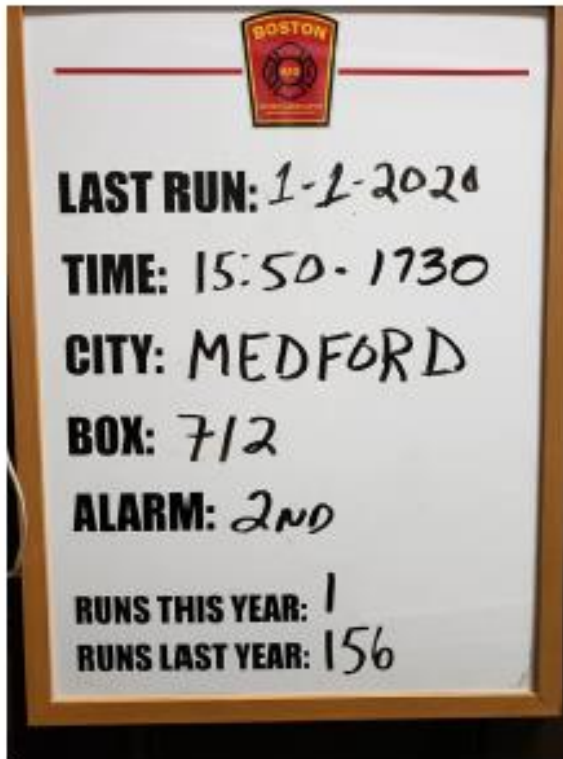 BOSTON
LAST RUN: 1-1-2020
TIME: 15:50 - 1730
CITY: MEDFORD
BOX: 712
ALARM: 2ND
RUNS THIS YEAR: 1
RUNS LAST YEAR: 156